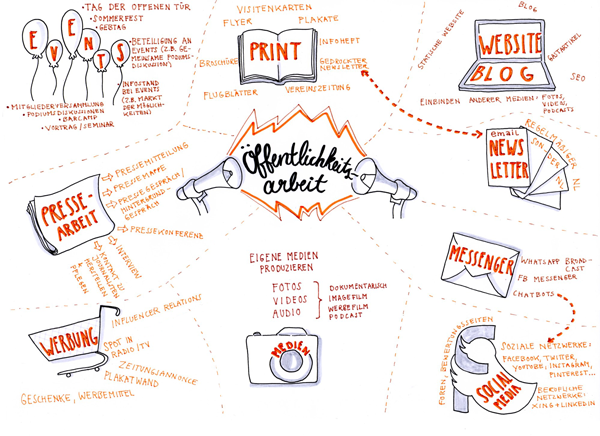 EVENTS
• TAG DER OFFENEN TÜR
• SOMMERFEST
• GEBTAG
• BETEILIGUNG AN
EVENTS (Z.B. GE-
MEINSAME PODIUMS-
DISKUSSION)
• INFOSTAND
BEI EVENTS
(Z.B. MARKT
DER MÖGLICH-
KEITEN)
• MITGLIEDERVERSAMMLUNG
• PODIUMSDISKUSSIONEN
• BARCAMP
• VORTRAG/SEMINAR
VISITENKARTEN
FLYER
PLAKATE
PRINT
INFOHEFT
BROSCHÜRE
GEDRUCKTER
NEWSLETTER
FLUGBLÄTTER
VEREINSZEITUNG
BLOG
STATISCHE WEBSITE
WEBSITE
BLOG
GASTARTIKEL
SEO
EINBINDEN ANDERER MEDIEN: FOTOS,
VIDEO,
PODCASTS
Öffentlichkeits-
arbeit
email
NEWS
LETTER
REGELMÄßIGER
NL
SONDER
NL
PRESSE-
ARBEIT
PRESSEMITTEILUNG
PRESSEMAPPE
PRESSEGESPRÄCH/
HINTERGRUND-
GESPRÄCH
PRESSEKONFERENZ
INTERVIEW
KONTAKT ZU
JOURNALISTEN
HERSTELLEN
+ PFLEGEN
MESSENGER
WHATSAPP BROAD-
CAST
FB MESSENGER
CHATBOTS
EIGENE MEDIEN
PRODUZIEREN
FOTOS
VIDEOS
AUDIO
DOKUMENTARISCH
IMAGEFILM
WERBEFILM
PODCAST
MEDIEN
WERBUNG
INFLUENCER RELATIONS
SPOT IN
RADIO/TV
ZEITUNGSANNONCE
PLAKATWAND
GESCHENKE, WERBEMITTEL
FOREN, BEWERTUNGSSEITEN
SOCIAL
MEDIA
SOZIALE NETZWERKE:
FACEBOOK, TWITTER,
YOUTUBE, INSTAGRAM,
PINTEREST...
BERUFLICHE
NETZWERKE:
XING + LINKEDIN